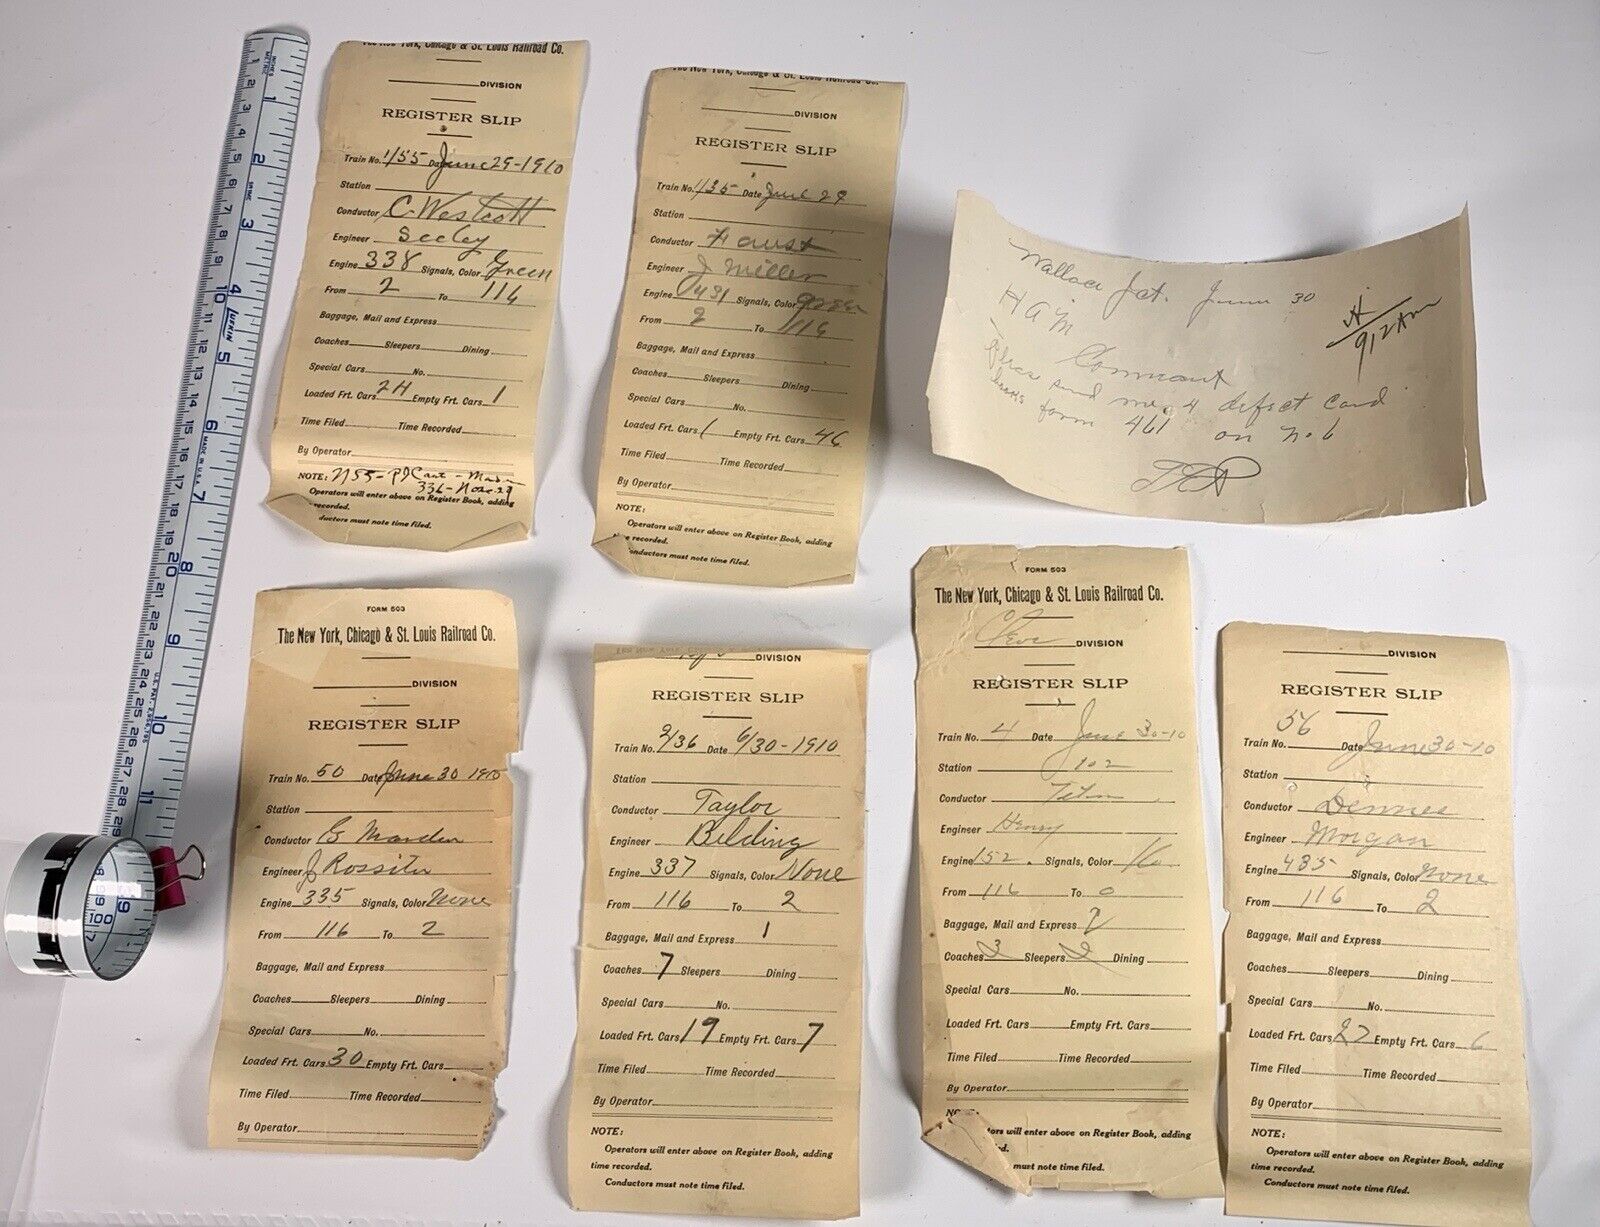 The New York, Chicago & St. Louis Railroad Co.
DIVISION
REGISTER SLIP
Train No. 1/55 Date June 29-1910
Station
Conductor C. Westcott
Engineer Seeley
Engine 338 Signals, Color Green
From 2 To 116
Baggage, Mail and Express
Coaches Sleepers Dining
Special Cars No.
Loaded Frt. Cars 24 Empty Frt. Cars 1
Time Filed Time Recorded
By Operator
NOTE:
336
Operators will enter above on Register Book, adding
recorded.
ductors must note time filed.
The New York, Chicago & St. Louis Railroad Co.
DIVISION
REGISTER SLIP
Train No. 1/35 Date June 29
Station
Conductor Faust
Engineer J Miller
Engine 431 Signals, Color green
From 2 To 116
Baggage, Mail and Express
Coaches Sleepers Dining
Special Cars No.
Loaded Frt. Cars 1 Empty Frt. Cars 46
Time Filed Time Recorded
By Operator
NOTE:
Operators will enter above on Register Book, adding
time recorded.
Conductors must note time filed.
Wallace Jct. June 30
H A M
912 AM
Conneaut
Pleas send me 4 defect card
books form 461 on No 6
FORM 503
The New York, Chicago & St. Louis Railroad Co.
DIVISION
REGISTER SLIP
Train No. 50 Date June 30 1910
Station
Conductor G Marden
Engineer J Rossiter
Engine 335 Signals, Color None
From 116 To 2
Baggage, Mail and Express
Coaches Sleepers Dining
Special Cars No.
Loaded Frt. Cars 30 Empty Frt. Cars
Time Filed Time Recorded
By Operator
DIVISION
REGISTER SLIP
Train No. 2/36 Date 6/30-1910
Station
Conductor Taylor
Engineer Belding
Engine 337 Signals, Color None
From 116 To 2
Baggage, Mail and Express 1
Coaches 7 Sleepers Dining
Special Cars No.
Loaded Frt. Cars 19 Empty Frt. Cars 7
Time Filed Time Recorded
By Operator
NOTE:
Operators will enter above on Register Book, adding
time recorded.
Conductors must note time filed.
FORM 503
The New York, Chicago & St. Louis Railroad Co.
Cleve DIVISION
REGISTER SLIP
Train No. 4 Date June 30-10
Station 102
Conductor
Engineer Henry
Engine 152. Signals, Color
From 116 To 0
Baggage, Mail and Express 2
Coaches 3 Sleepers 2 Dining
Special Cars No.
Loaded Frt. Cars Empty Frt. Cars
Time Filed Time Recorded
By Operator
tors will enter above on Register Book, adding
recorded.
must note time filed.
DIVISION
REGISTER SLIP
Train No. 56 Date June 30-10
Station
Conductor Dennee
Engineer Morgan
Engine 435 Signals, Color None
From 116 To 2
Baggage, Mail and Express
Coaches Sleepers Dining
Special Cars No.
Loaded Frt. Cars 27 Empty Frt. Cars 6
Time Filed Time Recorded
By Operator
NOTE:
Operators will enter above on Register Book, adding
time recorded.
Conductors must note time filed.
INCHES
METRIC
LUFKIN
MADE IN U.S.A.
U.S. PAT. 2,956,795